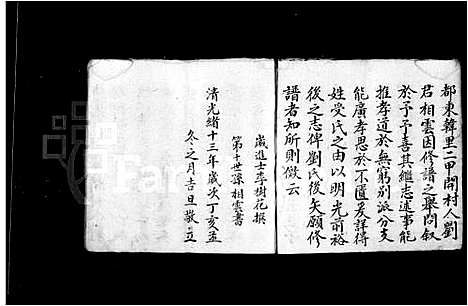 都東韓里二甲開村人劉
君相雲因修譜之舉問叙
於予予喜其繼志述事能
推孝道於無窮別派分支
能廣孝思於不匱爰詳得
姓受氏之由以明光前裕
後之志俾劉氏後矣願修
譜者知所則傚云
歲進士李樹花撰
第十世孫相雲書
清光緒十三年歲次丁亥孟
冬之月吉旦敬立